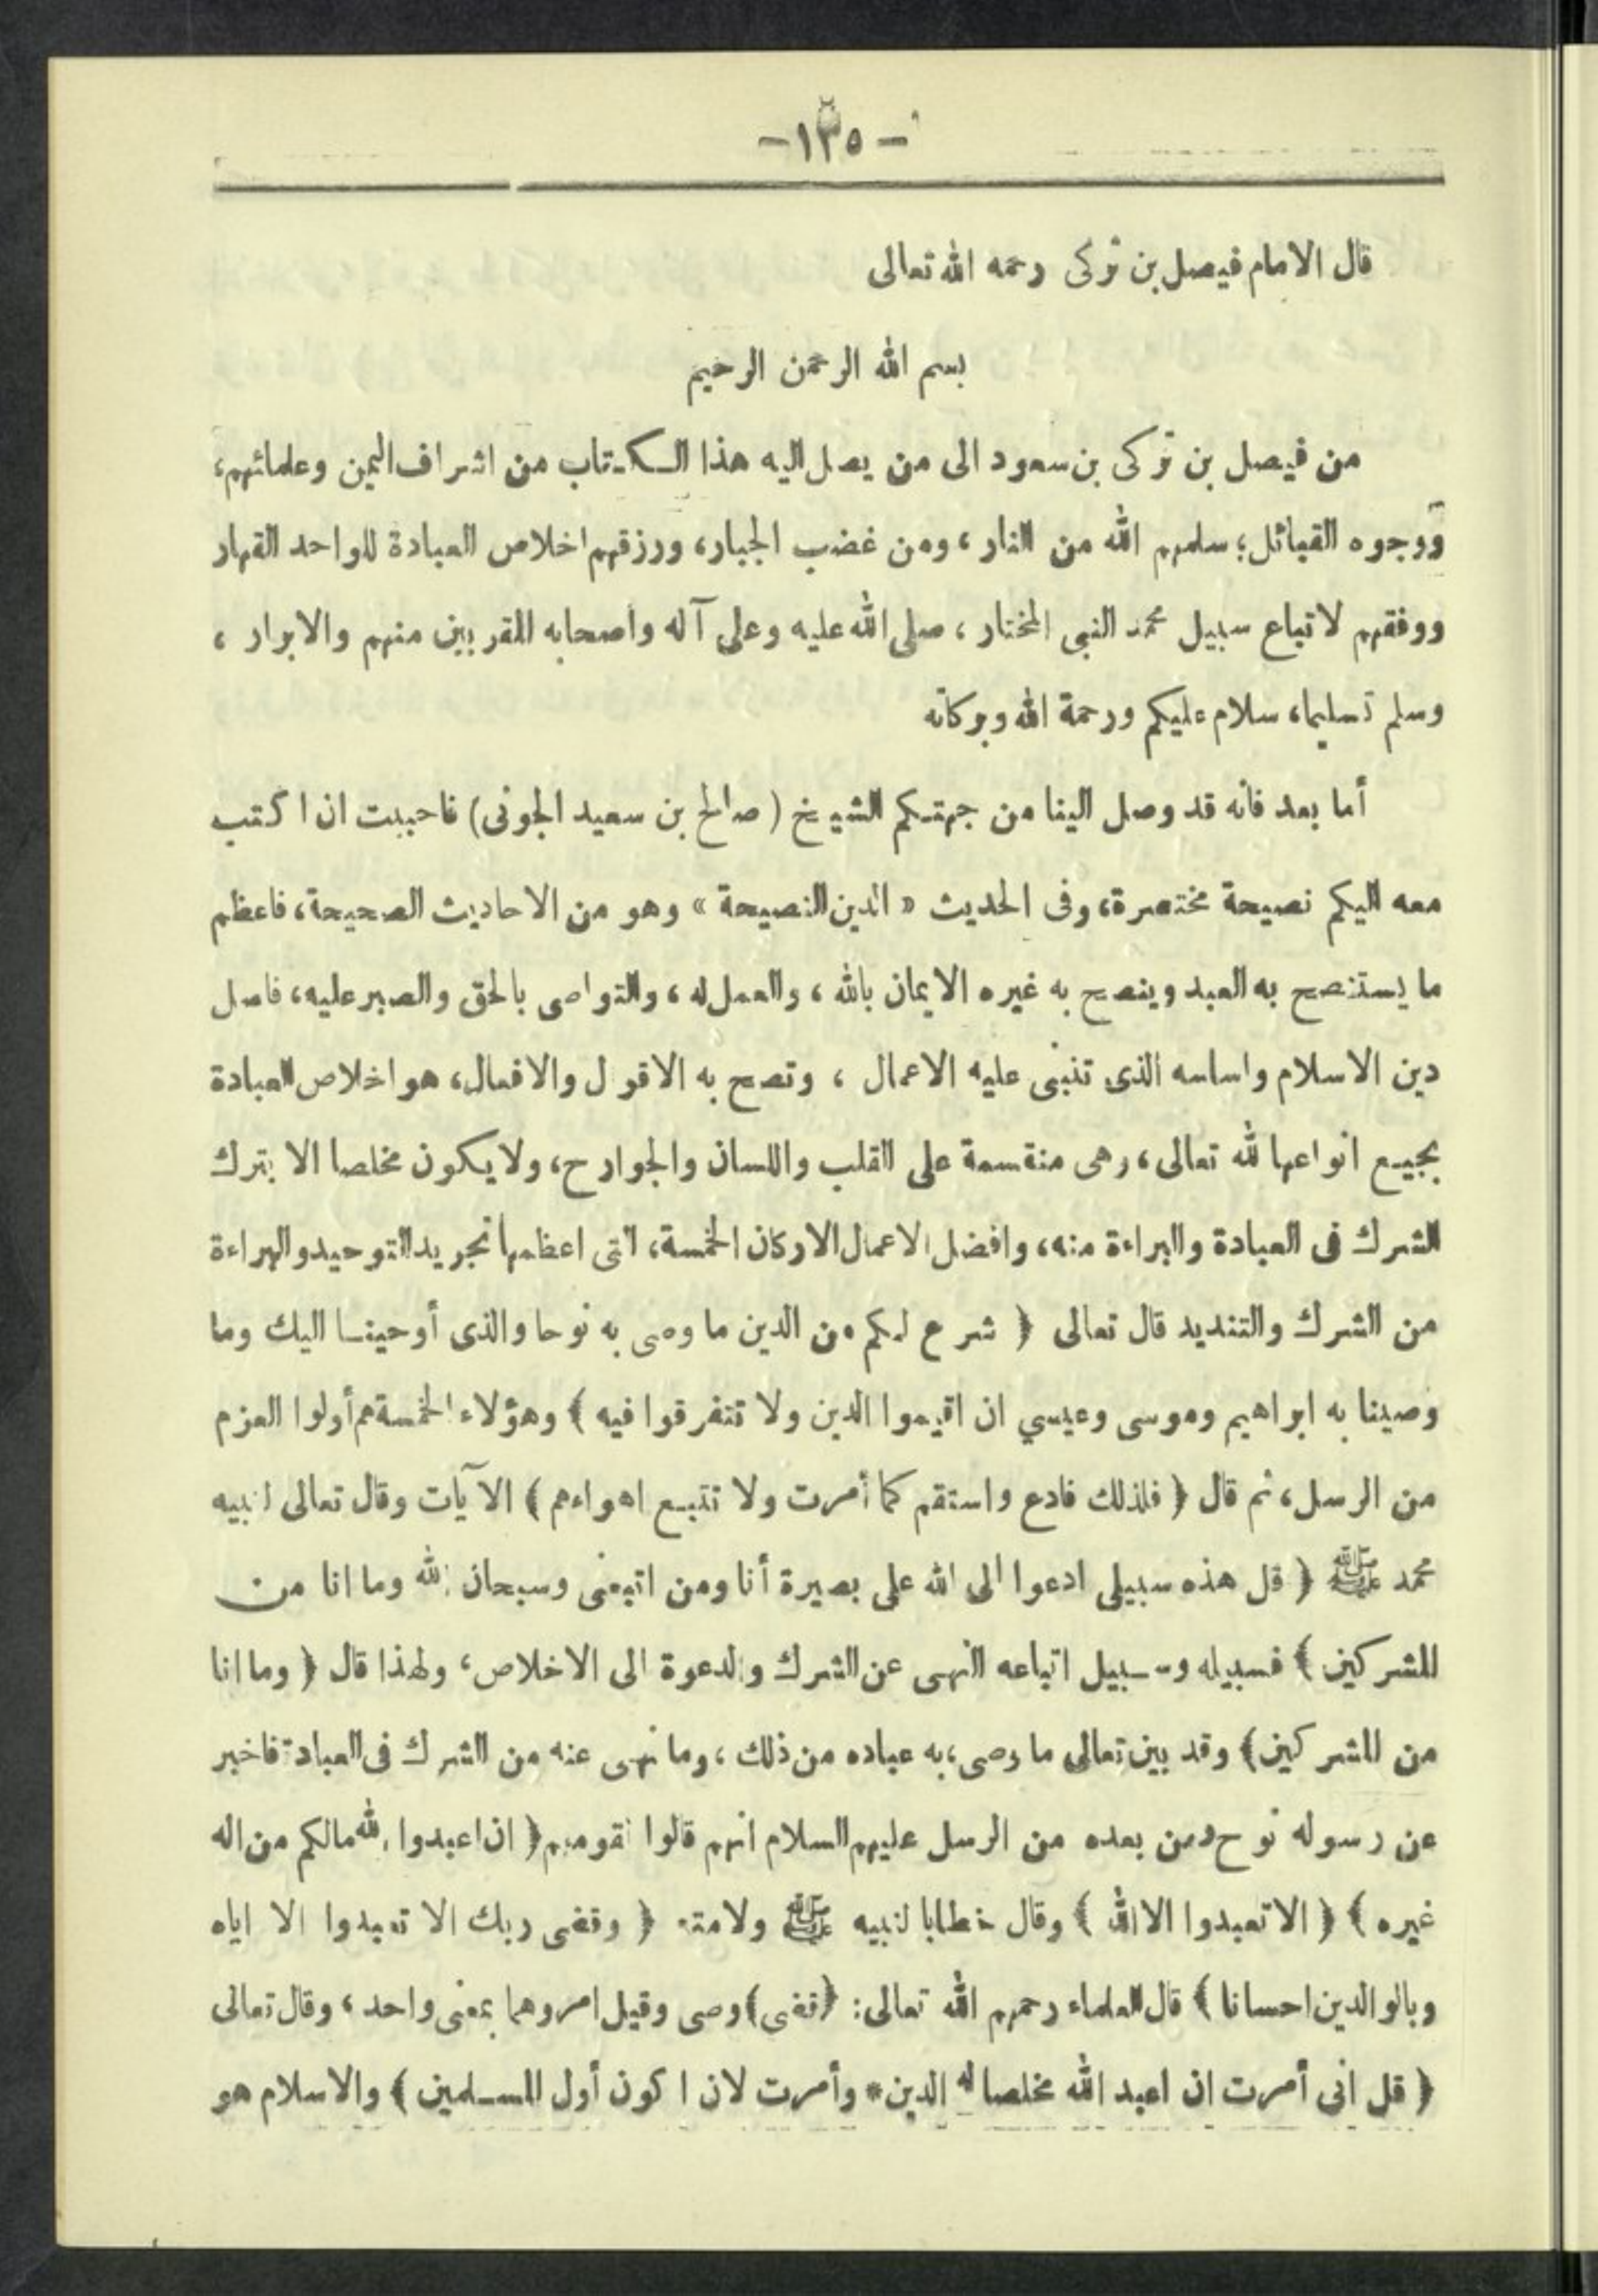 -١٣٥-
قال الامام فيصل بن تركى رحمه الله تعالى
بسم الله الرحمن الرحيم
من فيصل بن تركى بن سعود الى من يصل اليه هذا الكتاب من اشراف اليمن وعلمائهم،
ووجوه القبائل؛ سلمهم الله من النار، ومن غضب الجبار، ورزقهم اخلاص العبادة للواحد القهار
ووفقهم لاتباع سبيل محمد النبى المختار، صلى الله عليه وعلى آله واصحابه المقربين منهم والابرار،
وسلم تسليما، سلام عليكم ورحمة الله وبركاته
أما بعد فانه قد وصل الينا من جهتكم الشيخ (صالح بن سعيد الجونى) فاحببت ان اكتب
معه اليكم نصيحة مختصرة، وفى الحديث « الدين النصيحة » وهو من الاحاديث الصحيحة، فاعظم
ما يستنصح به العبد وينصح به غيره الايمان بالله، والعمل له، والتواصى بالحق والصبر عليه، فاصل
دين الاسلام واساسه الذى تنبنى عليه الاعمال، وتصح به الاقول والافعال، هو اخلاص العبادة
بجميع انواعها لله تعالى، وهى منقسمة على القلب واللسان والجوارح، ولا يكون مخلصا الا بترك
الشرك فى العبادة والبراءة منه، وافضل الاعمال الاركان الخمسة، التى اعظمها تجريد التوحيد والبراءة
من الشرك والتنديد قال تعالى ﴿ شرع لكم من الدين ما وصى به نوحا والذى أوحينا اليك وما
وصينا به ابراهيم وموسى وعيسي ان اقيموا الدين ولا تتفرقوا فيه ﴾ وهؤلاء الخمسة هم أولوا العزم
من الرسل، ثم قال ﴿ فلذلك فادع واستقم كما أمرت ولا تتبع اهواءهم ﴾ الآيات وقال تعالى لنبيه
محمد ﷺ ﴿ قل هذه سبيلى ادعوا الى الله على بصيرة أنا ومن اتبعنى وسبحان الله وما انا من
المشركين ﴾ فسبيله وسبيل اتباعه النهى عن الشرك والدعوة الى الاخلاص، ولهذا قال ﴿ وما انا
من المشركين﴾ وقد بين تعالى ما وصى به عباده من ذلك، وما نهى عنه من الشرك فى العبادة فاخبر
عن رسوله نوح ومن بعده من الرسل عليهم السلام انهم قالوا لقومهم ﴿ ان اعبدوا الله مالكم من اله
غيره ﴾ ﴿ الا تعبدوا الا الله ﴾ وقال خطابا لنبيه ﷺ ولامته ﴿ وقضى ربك الا تعبدوا الا اياه
وبالوالدين احسانا ﴾ قال العلماء رحمهم الله تعالى: ﴿قضى﴾ وصى وقيل امر وهما بمعنى واحد، وقال تعالى
﴿ قل انى أمرت ان اعبد الله مخلصا له الدين * وأمرت لان اكون أول المسلمين ﴾ والاسلام هو